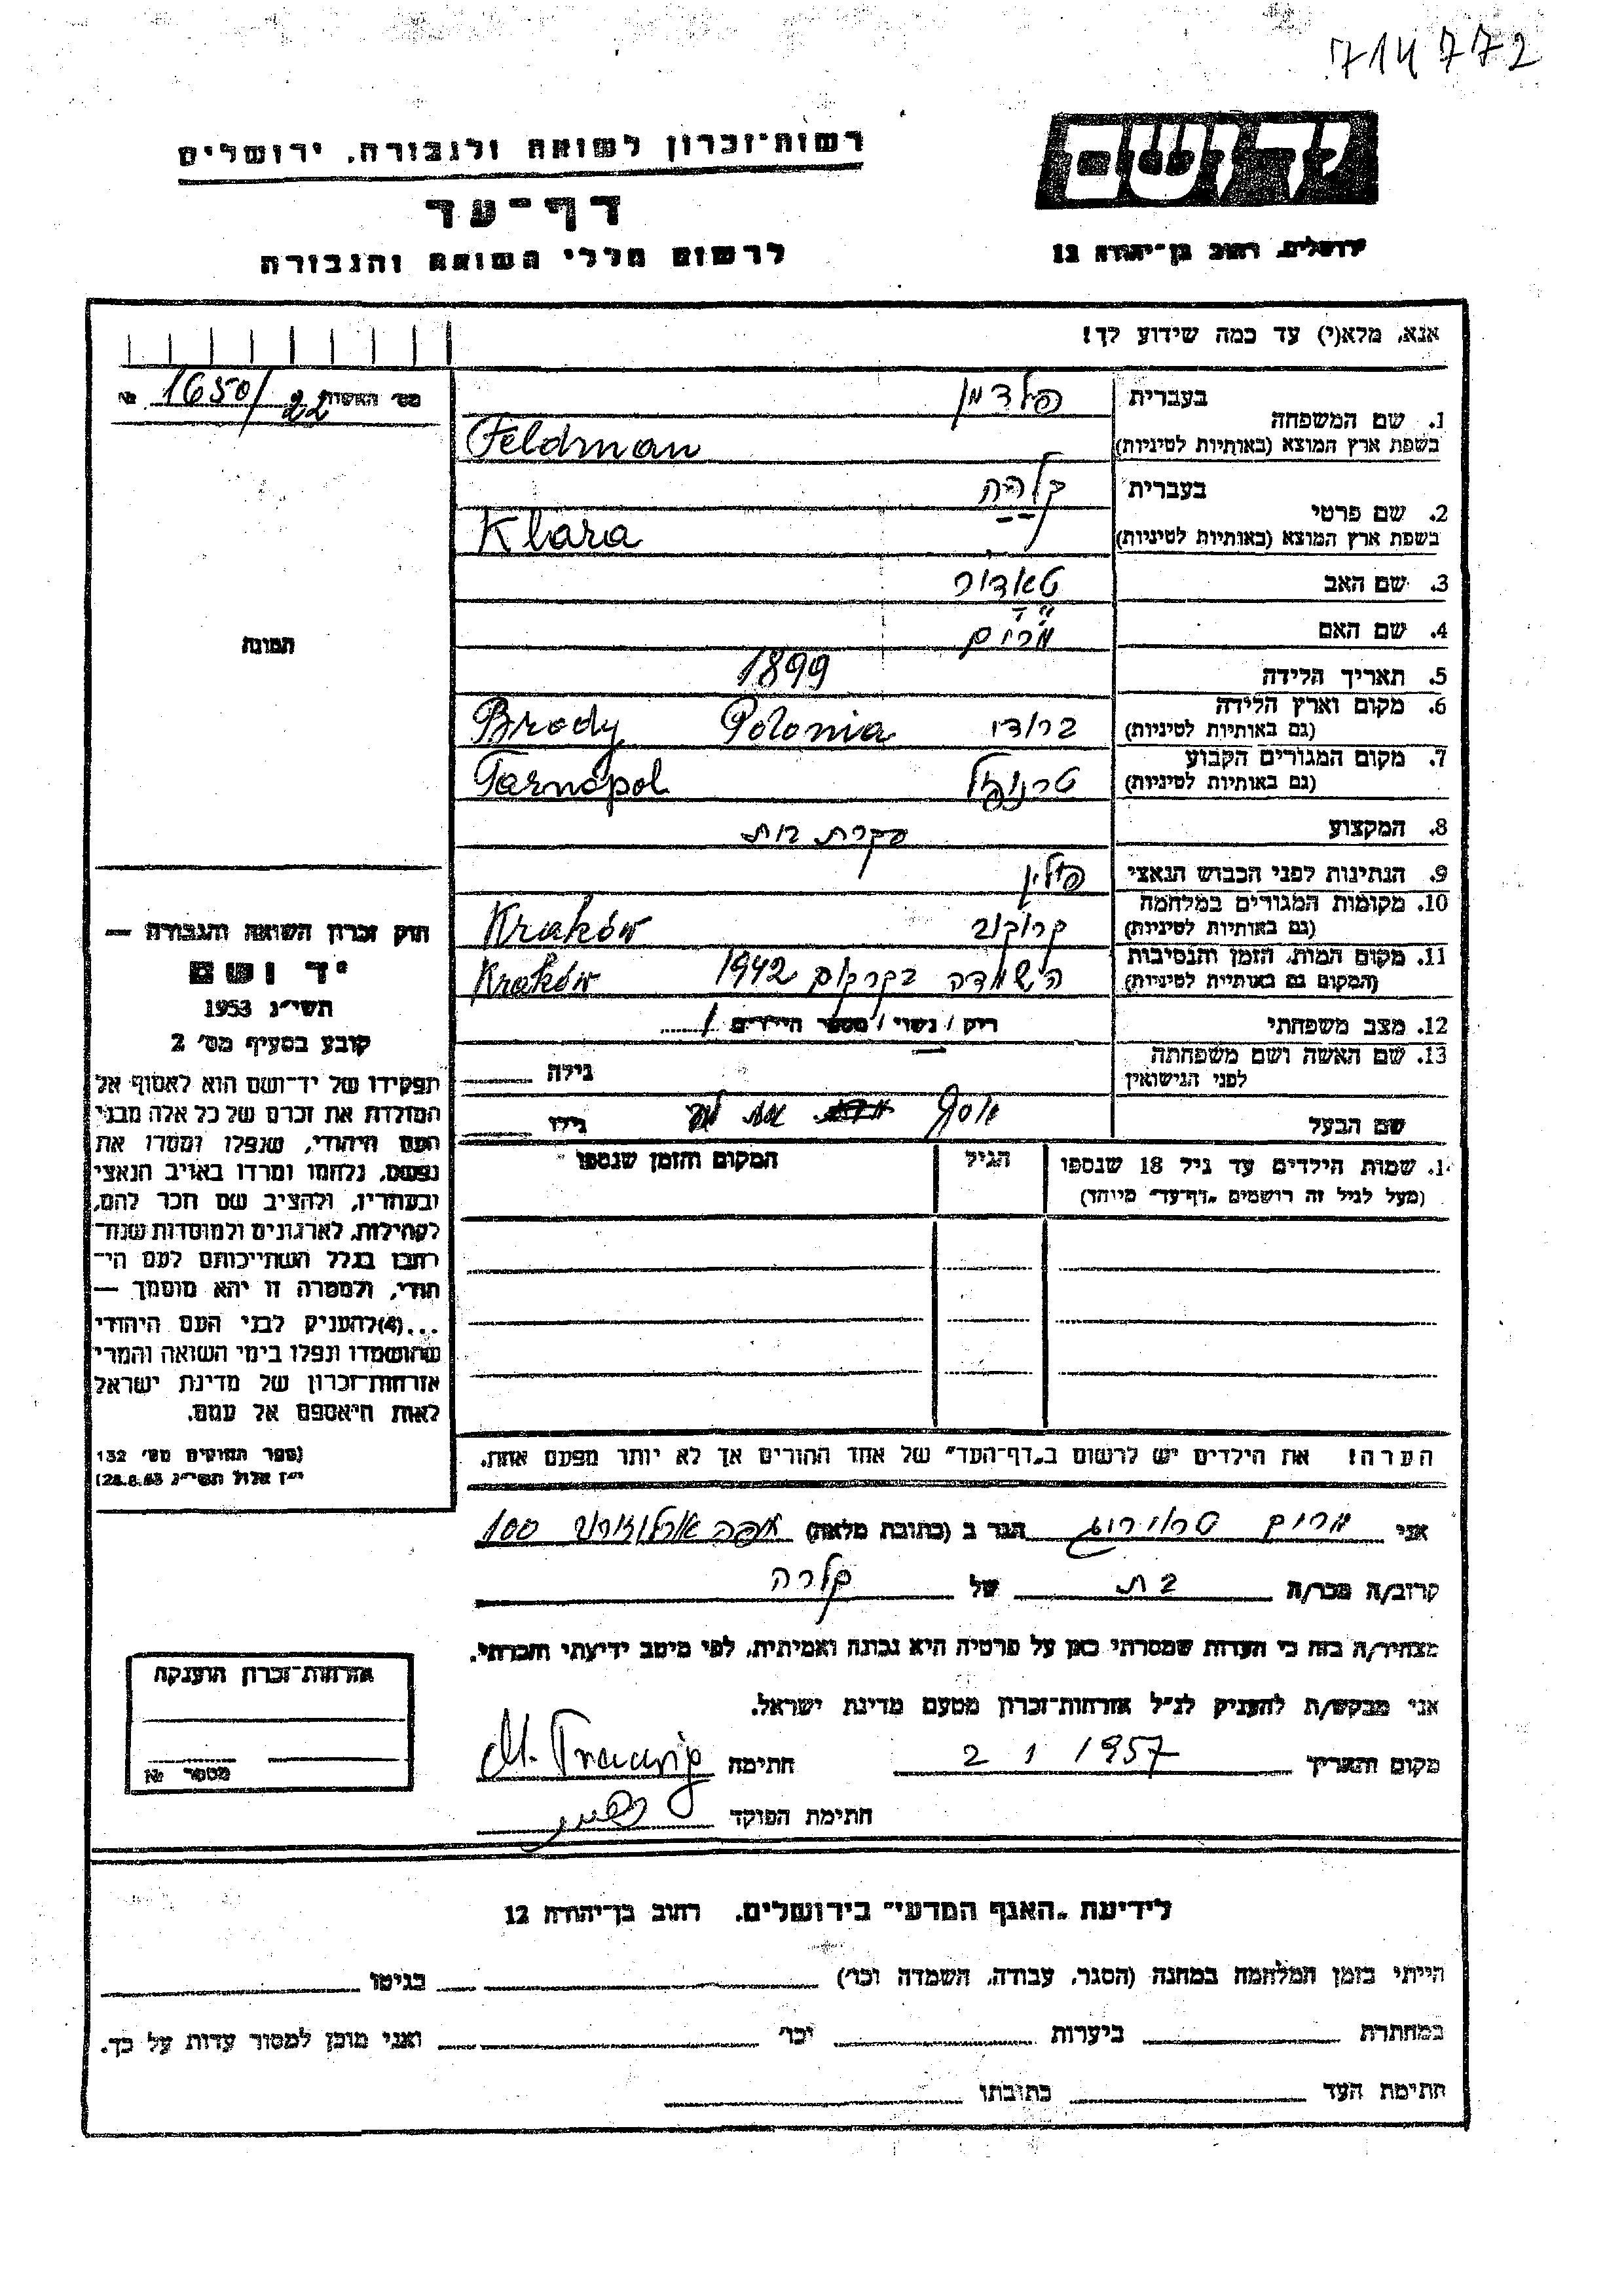 714772
יד ושם
ירושלים, רחוב בן־יהודה 12
רשות־זכרון לשואה ולגבורה, ירושלים
דף־עד
לרשום חללי השואה והגבורה
אנא, מלא(י) עד כמה שידוע לך!
מס׳ האשות 1650/22 №
בעברית פלדמן
1. שם המשפחה
בשפת ארץ המוצא (באותיות לטיניות) Feldman
בעברית קלרה
2. שם פרטי
בשפת ארץ המוצא (באותיות לטיניות) Klara
3. שם האב
4. שם האם מרים
5. תאריך הלידה 1899
6. מקום וארץ הלידה ברודי Polonia Brody
(גם באותיות לטיניות)
7. מקום המגורים הקבוע טרנופול Tarnopol
(גם באותיות לטיניות)
8. המקצוע עקרת בית
9. הנתינות לפני הכבוש הנאצי פולין
10. מקומות המגורים במלחמה קרוקוב Kraków
(גם באותיות לטיניות)
11. מקום המות, הזמן והנסיבות הושמדה בקרקוב 1942 Kraków
(המקום גם באותיות לטיניות)
12. מצב משפחתי רוק / נשוי / מספר הילדים 1
13. שם האשה ושם משפחתה
לפני הנישואין
גילה
שם הבעל
גילו
14. שמות הילדים עד גיל 18 שנספו
(מעל לגיל זה רושמים „דף־עד״ מיוחד)
הגיל
המקום והזמן שנספו
הערה! את הילדים יש לרשום ב„דף־העד״ של אחד ההורים אך לא יותר מפעם אחת.
תמונה
חוק זכרון השואה והגבורה —
יד ושם
תשי״ג 1953
קובע בסעיף מס׳ 2
תפקידו של יד־ושם הוא לאסוף אל
המולדת את זכרם של כל אלה מבני
העם היהודי, שנפלו ומסרו את
נפשם, נלחמו ומרדו באויב הנאצי
ובעוזריו, ולהציב שם וזכר להם,
לקהילות, לארגונים ולמוסדות שנח־
רבו בגלל השתייכותם לעם הי־
הודי, ולמטרה זו יהא מוסמך —
...(4)להעניק לבני העם היהודי
שהושמדו ונפלו בימי השואה והמרי
אזרחות־זכרון של מדינת ישראל
לאות היאספם אל עמם.
(ספר החוקים מס׳ 132
י״ז אלול תשי״ג 28.8.53)
אני מרים טראוריג הגר ב (כתובת מלאה) חיפה ארלוזורוב 100
קרוב/ה מכר/ה בת של קלרה
מצהיר/ה בזה כי העדות שמסרתי כאן על פרטיה היא נכונה ואמיתית, לפי מיטב ידיעתי והכרתי.
אני מבקש/ת להעניק לנ״ל אזרחות־זכרון מטעם מדינת ישראל.
מקום ותאריך 2 1 1957 חתימה M. Traurig
חתימת הפוקד
אזרחות־זכרון הוענקה
מספר №
לידיעת „האגף המדעי״ בירושלים, רחוב בן־יהודה 12
הייתי בזמן המלחמה במחנה (הסגר, עבודה, השמדה וכו׳) בגיטו
במחתרת ביערות וכו׳ ואני מוכן למסור עדות על כך.
חתימת העד כתובתו